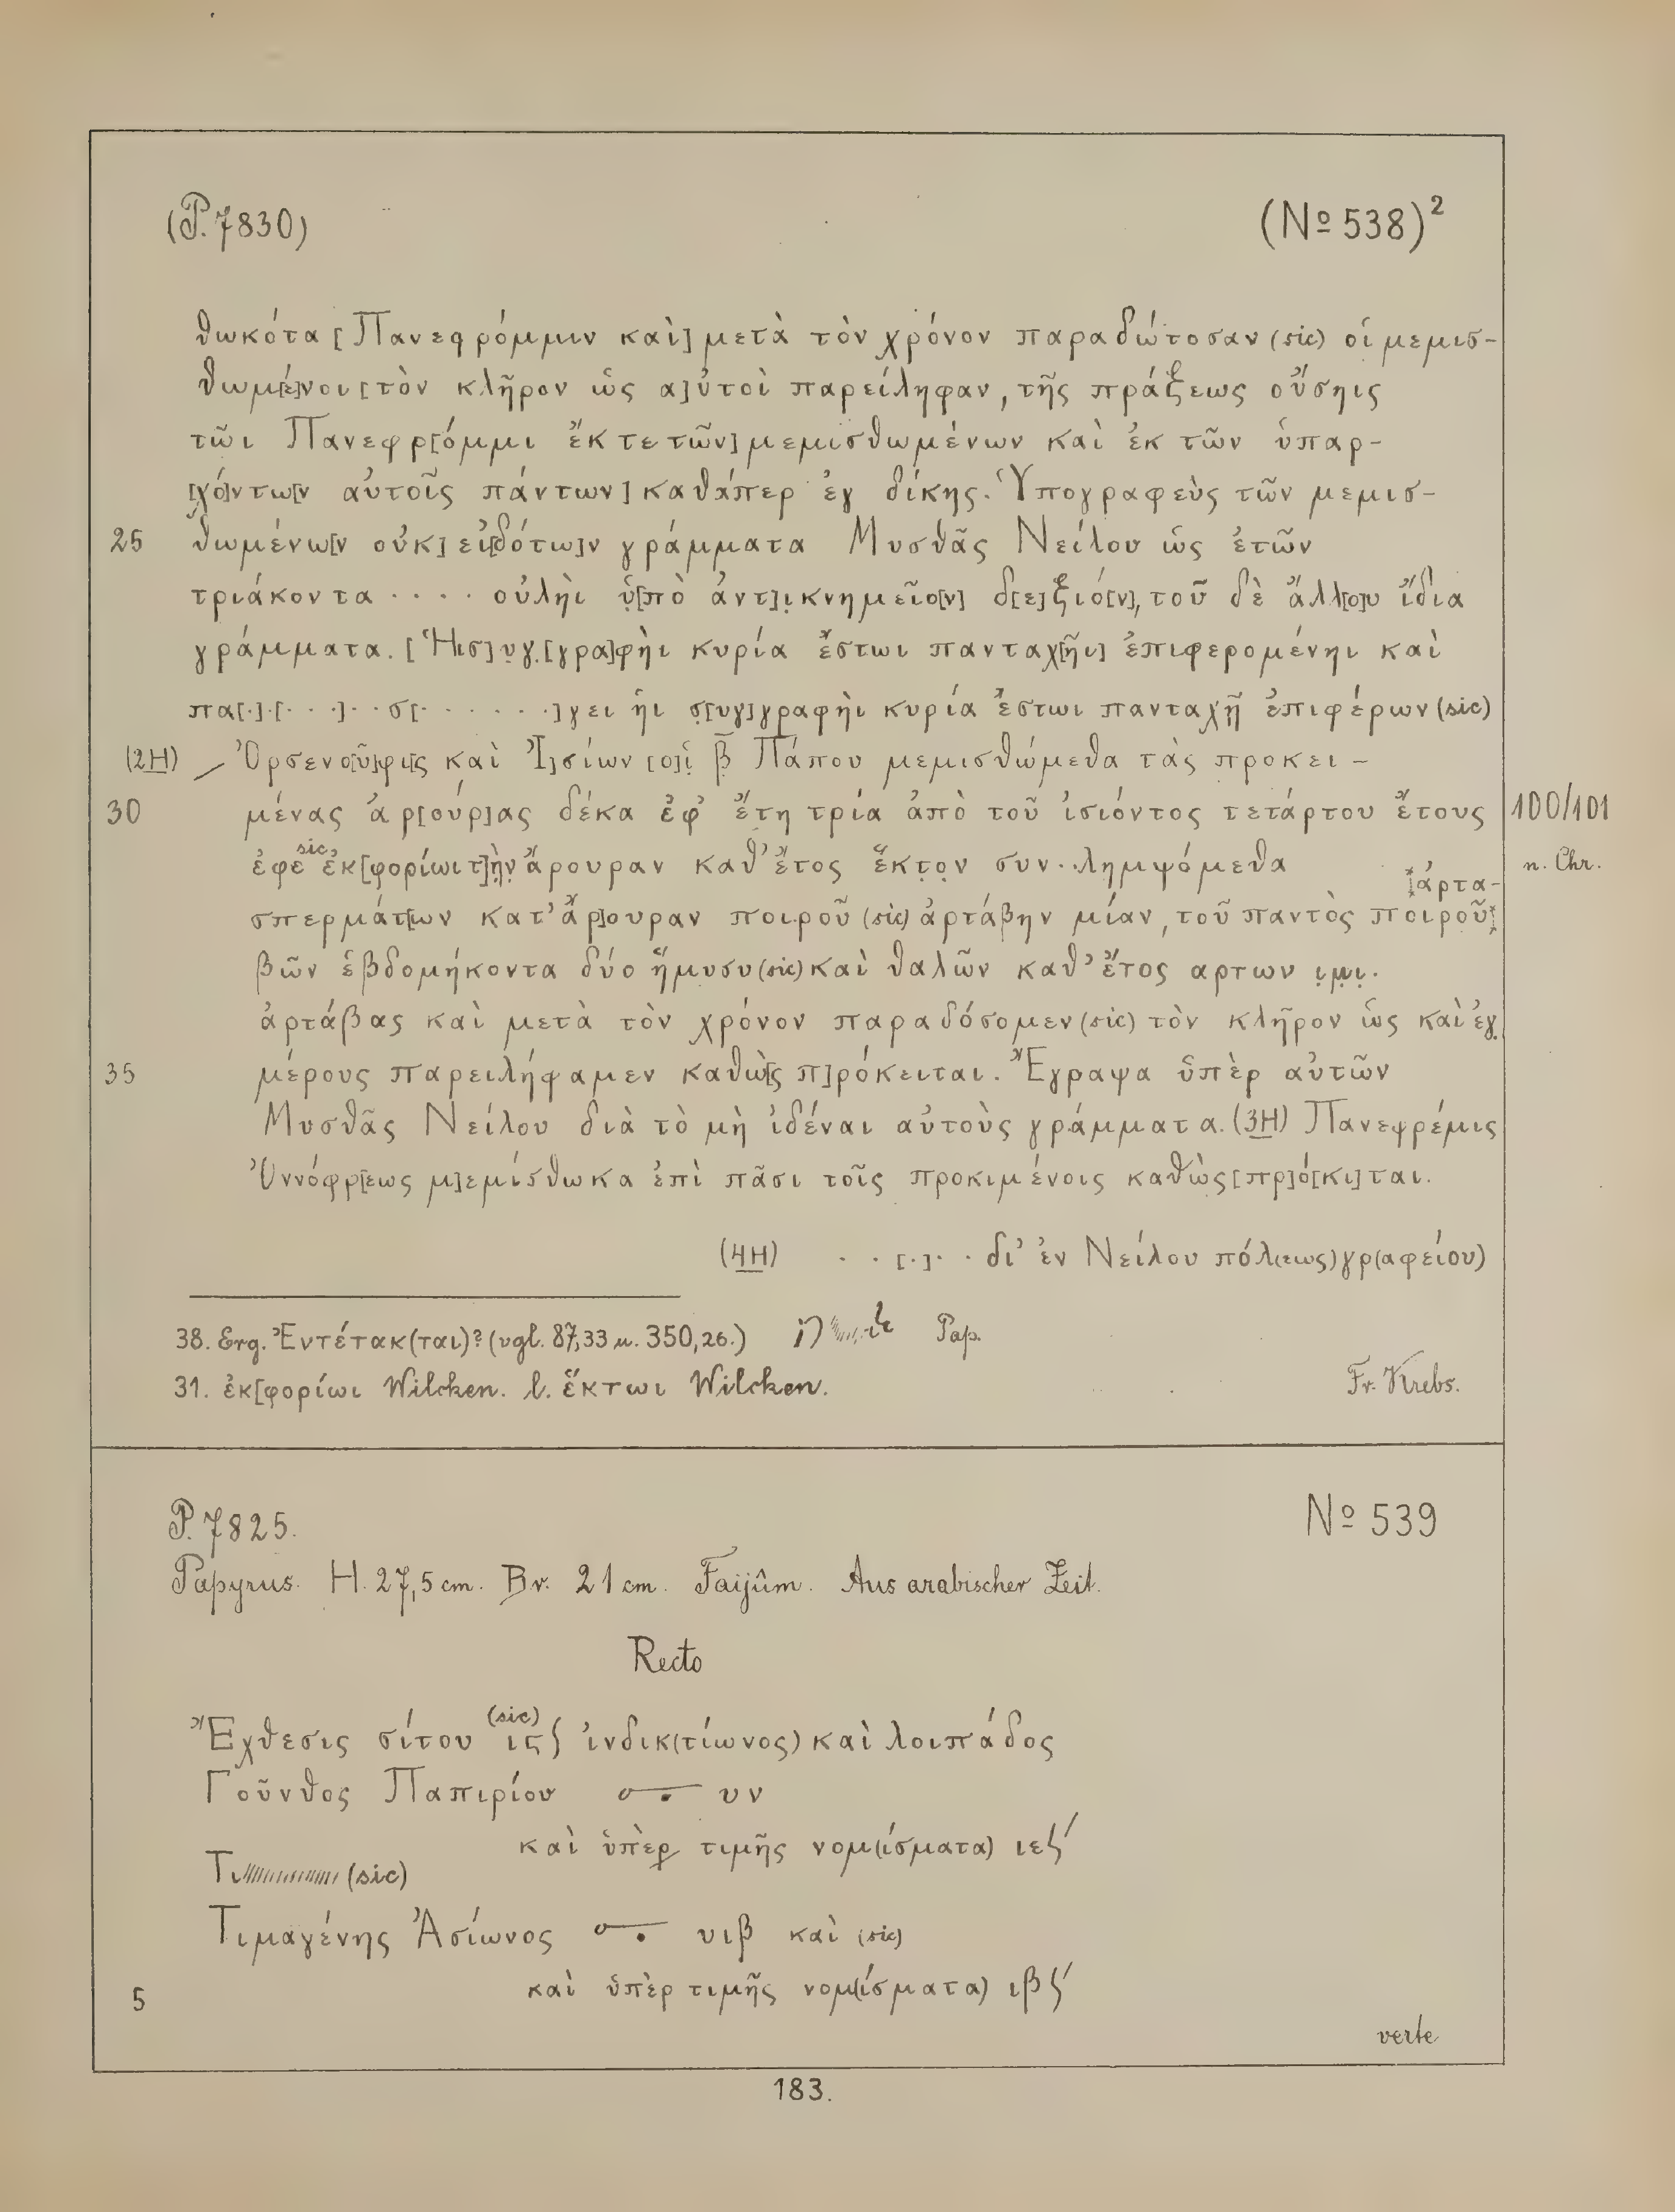 (P. 7830) (No 538)²
θωκότα [Πανεφρόμμιν καὶ] μετὰ τὸν χρόνον παραδώτοσαν (sic) οἱ μεμισ-
θωμ[έ]νοι [τὸν κλῆρον ὡς α]ὐτοὶ παρείληφαν, τῆς πράξεως οὔσηις
τῶι Πανεφρ[όμμι ἔκ τε τῶν] μεμισθωμένων καὶ ἐκ τῶν ὑπαρ-
[χό]ντω[ν αὐτοῖς πάντων] καθάπερ ἐγ δίκης. Ὑπογραφεὺς τῶν μεμισ-
25 θωμένω[ν οὐκ] εἰ[δότω]ν γράμματα Μυσθᾶς Νείλου ὡς ἐτῶν
τριάκοντα . . . . οὐλὴι ὑ̣[πὸ ἀντ]ι̣κνημεῖο[ν] δ[ε]ξιό[ν], τοῦ δὲ ἄλλ[ο]υ ἴδια
γράμματα. [Ἡι σ]υ̣γ̣[γρα]φὴι κυρία ἔστωι πανταχ[ῆι] ἐπιφερομένηι καὶ
πα[.].[. . .]. . σ[. . . . . . .]γει ἡι σ̣[υγ]γραφὴι κυρία ἔστωι πανταχῇ ἐπιφέρων (sic)
(2H) / Ὀρσενο[ῦ]φι[ς καὶ Ἰ]σίων [ο]ἱ̣ β̅ Πάπου μεμισθώμεθα τὰς προκει-
30 μένας ἀρ[ούρ]ας δέκα ἐφ' ἔτη τρία ἀπὸ τοῦ ἰσιόντος τετάρτου ἔτους 100/101
ἐφε (sic) ἐκ[φορίωι τ]ὴ̣ν̣ ἄρουραν καθ' ἔτος ἕκτ̣ο̣ν συν..λημψόμεθα n. Chr.
σπερμάτ[ων κατ' ἄρ]ουραν ποιροῦ (sic) ἀρτάβην μίαν, τοῦ παντὸς ποιροῦ ἀρτα-
βῶν ἑβδομήκοντα δύο ἥμυσυ (sic) καὶ θαλῶν καθ' ἔτος αρτων ι̣μ̣ι̣.
ἀρτάβας καὶ μετὰ τὸν χρόνον παραδόσομεν (sic) τὸν κλῆρον ὡς καὶ ἐγ̣
35 μέρους παρειλήφαμεν καθὼ[ς π]ρόκειται. Ἔγραψα ὑπὲρ αὐτῶν
Μυσθᾶς Νείλου διὰ τὸ μὴ ἰδέναι αὐτοὺς γράμματα. (3H) Πανεφρέμις
Ὀννόφρ[εως μ]εμίσθωκα ἐπὶ πᾶσι τοῖς προκιμένοις καθὼς [πρ]ό[κι]ται.
(4H) . . [.]. . δι' ἐν Νείλου πόλ(εως) γρ(αφείου)
38. Erg. Ἐντέτακ(ται)? (vgl. 87,33 u. 350,26.) Pap.
31. ἐκ[φορίωι Wilcken. l. ἕκτωι Wilcken. Fr. Krebs.
P. 7825. No 539
Papyrus. H. 27,5 cm. Br. 21 cm. Faijûm. Aus arabischer Zeit.
Recto
Ἔχθεσις σίτου (sic) ιϛ ἰνδικ(τίωνος) καὶ λοιπάδος
Γοῦνθος Παπιρίου υν
καὶ ὑπὲρ τιμῆς νομ(ίσματα) ιε
Τι (sic)
Τιμαγένης Ἀσίωνος υιβ καὶ (sic)
5 καὶ ὑπὲρ τιμῆς νομ(ίσματα) ιβ
verte
183.